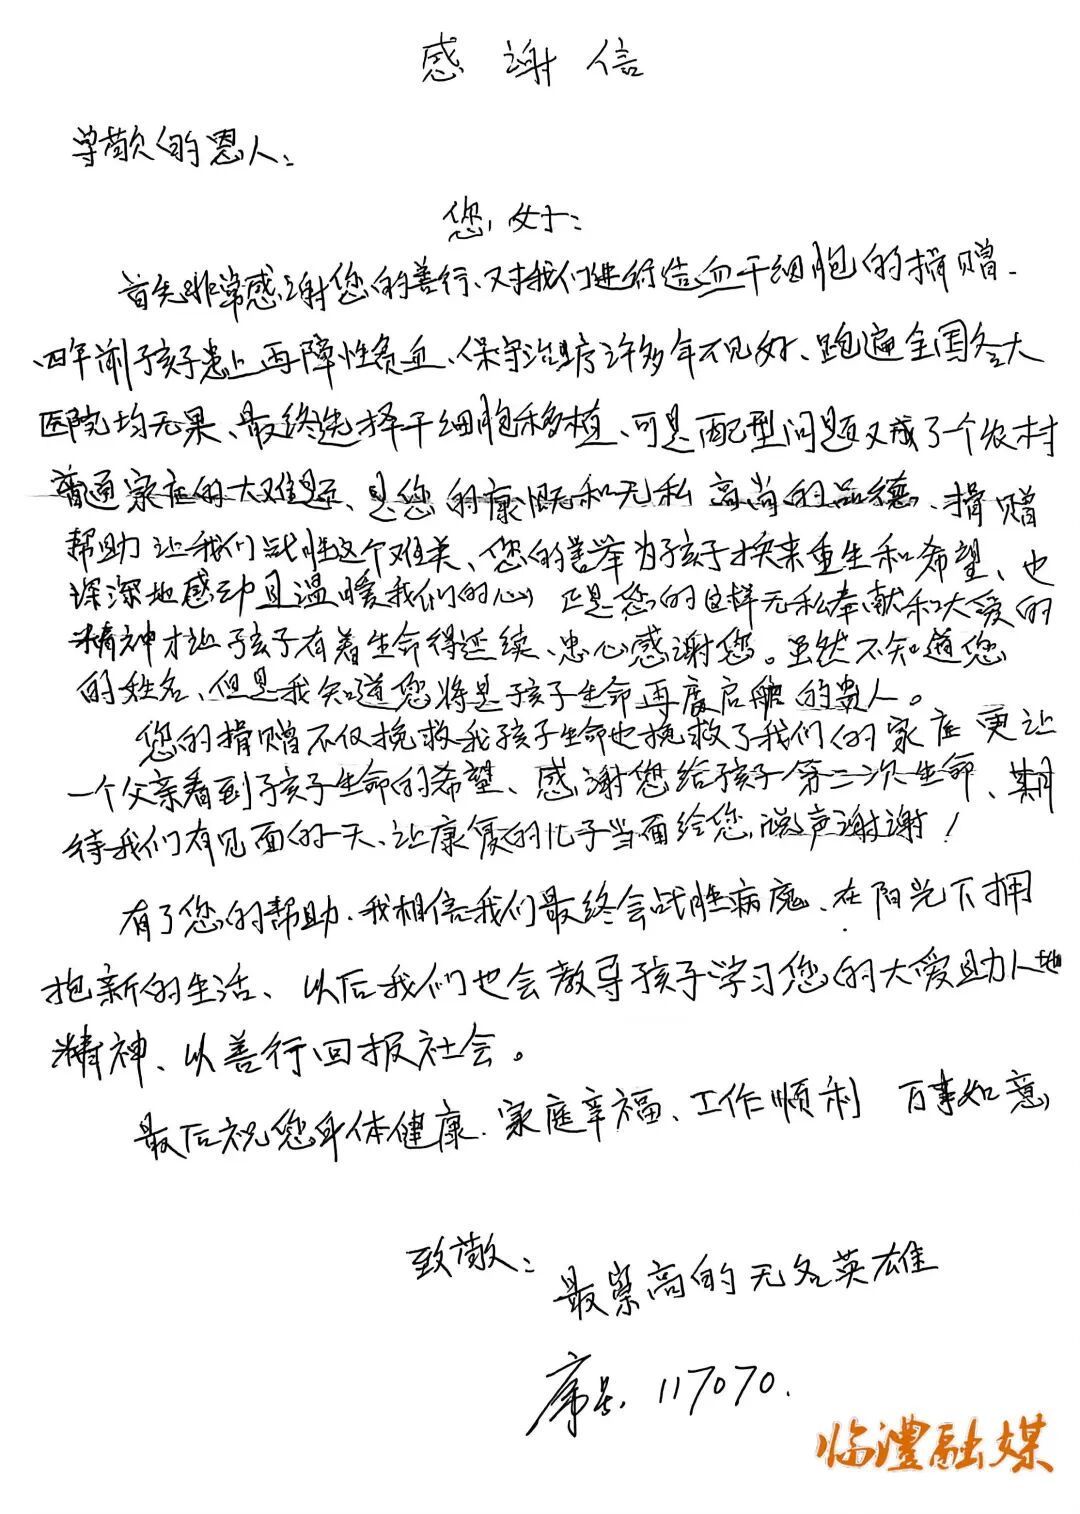 感谢信
尊敬的恩人：
您好：
首先非常感谢您的善行、对我们进行造血干细胞的捐赠.
四年前孩子患上再障性贫血、保守治疗许多年不见好、跑遍全国各大
医院均无果、最终选择干细胞移植、可是配型问题又成了一个农村
普通家庭的大难题、是您的慷慨和无私高尚的品德、捐赠
帮助让我们战胜这个难关、您的善举为孩子换来重生和希望、也
深深地感动且温暖我们的心 正是您的这样无私奉献和大爱的
精神才让孩子有着生命得延续、忠心感谢您。虽然不知道您
的姓名、但是我知道您将是孩子生命再度启航的贵人。
您的捐赠不仅挽救我孩子生命也挽救了我们的家庭更让
一个父亲看到孩子生命的希望、感谢您给孩子第二次生命、期
待我们有见面的一天、让康复的儿子当面给您说声谢谢！
有了您的帮助、我相信我们最终会战胜病魔、在阳光下拥
抱新的生活、以后我们也会教导孩子学习您的大爱助人地
精神、以善行回报社会。
最后祝您身体健康、家庭幸福、工作顺利 万事如意
致敬：
最崇高的无名英雄
序号. 117070.
临澧融媒